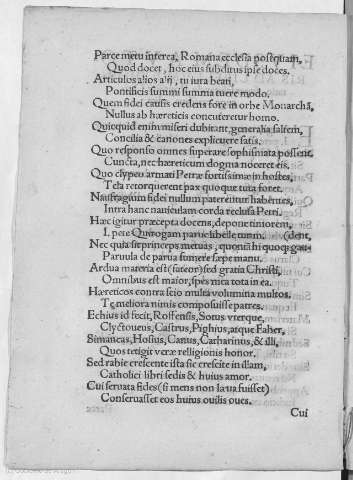 Parce metu interea, Romana ecclesia postquam
Quod docet, hoc eius subditus ipse doces.
Articulos alios alij, tu iura beati,
Pontificis summi summa tuere modo.
Quem fidei causis credens fore in orbe Monarchā,
Nullus ab hæreticis concuteretur homo.
Quicquid enim miseri dubitant, generalia saltem,
Concilia & canones explicuere satis.
Quo responso omnes superare sophismata possent
Cuncta, nec hæreticum dogma noceret eis.
Quo clypeo armari Petræ fortissimæ in hostes,
Tela retorquerent pax quoque tuta foret.
Naufragium fidei nullum paterentur habentes,
Intra hanc nauiculam corda reclusa Petri.
Hæc igitur præcepta docens, depone timorem,
I, pete Quirogam parue libelle tuum. (dent,
Nec quia sit princeps metuas, quoniā hi quoq; gau-
Paruula de parua sumere sæpe manu.
Ardua materia est (fateor) sed gratia Christi,
Omnibus est maior, spes mea tota in ea.
Hæreticos contra scio multa volumina multos.
Te meliora nimis composuisse patres.
Echius id fecit, Roffensis, Sotus vterque,
Clyctoueus, Castrus, Pighius, atque Faber,
Simancas, Hosius, Canus, Catharinus, & illi,
Quos tetigit veræ relligionis honor.
Sed rabie crescente ista sic crescite in illam,
Catholici libri sedis & huius amor.
Cui seruata fides (si mens non læua fuisset)
Conseruasset eos huius ouilis oues.
Cui